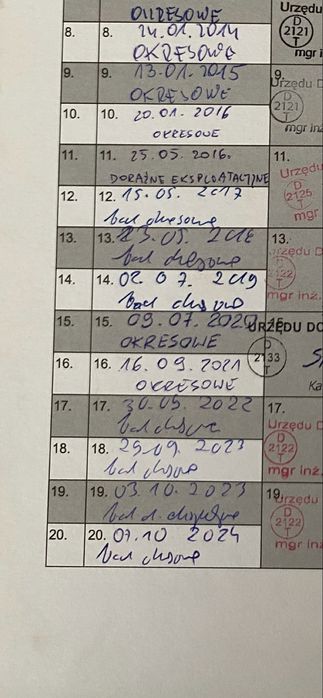 OKRESOWE
Urzędu
D
2121
T
mgr i
8. 8. 24.01.2014
OKRESOWE
9. 9. 13-01.2015 9.
OKRESOWE
Urzędu D
D
2121
T
mgr inż
10. 10. 20.01.2016
OKRESOWE
11. 11. 25.05.2016. 11.
DORAŹNE EKSPLOATACYJNE
Urzędu
D
2125
T
mgr
12. 12. 15.05. 2017
bad okresowe
13. 13. 23.05. 2018 13.
bad okresowe
rzędu D
D
2122
T
mgr inż.
14. 14. 02.07. 2019
bad okresowe
15. 15. 09.07.2020 15.
OKRESOWE
URZĘDU DO
D
2133
T
Ka
16. 16. 16.09.2021
OKRESOWE
17. 17. 30.09. 2022 17.
bad okresowe
Urzędu D
D
2122
T
mgr inż.
18. 18. 29.09. 2023
bad okresowe
19. 19. 03.10.2023 19.
bad d.
Urzędu
D
2122
T
mgr inż
20. 20. 07.10 2024
bad okresowe